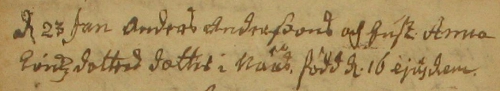 d. 23 Jan Anders Anderssons och hust. Anna
dotters dotter i född d. 16 ejusdem.